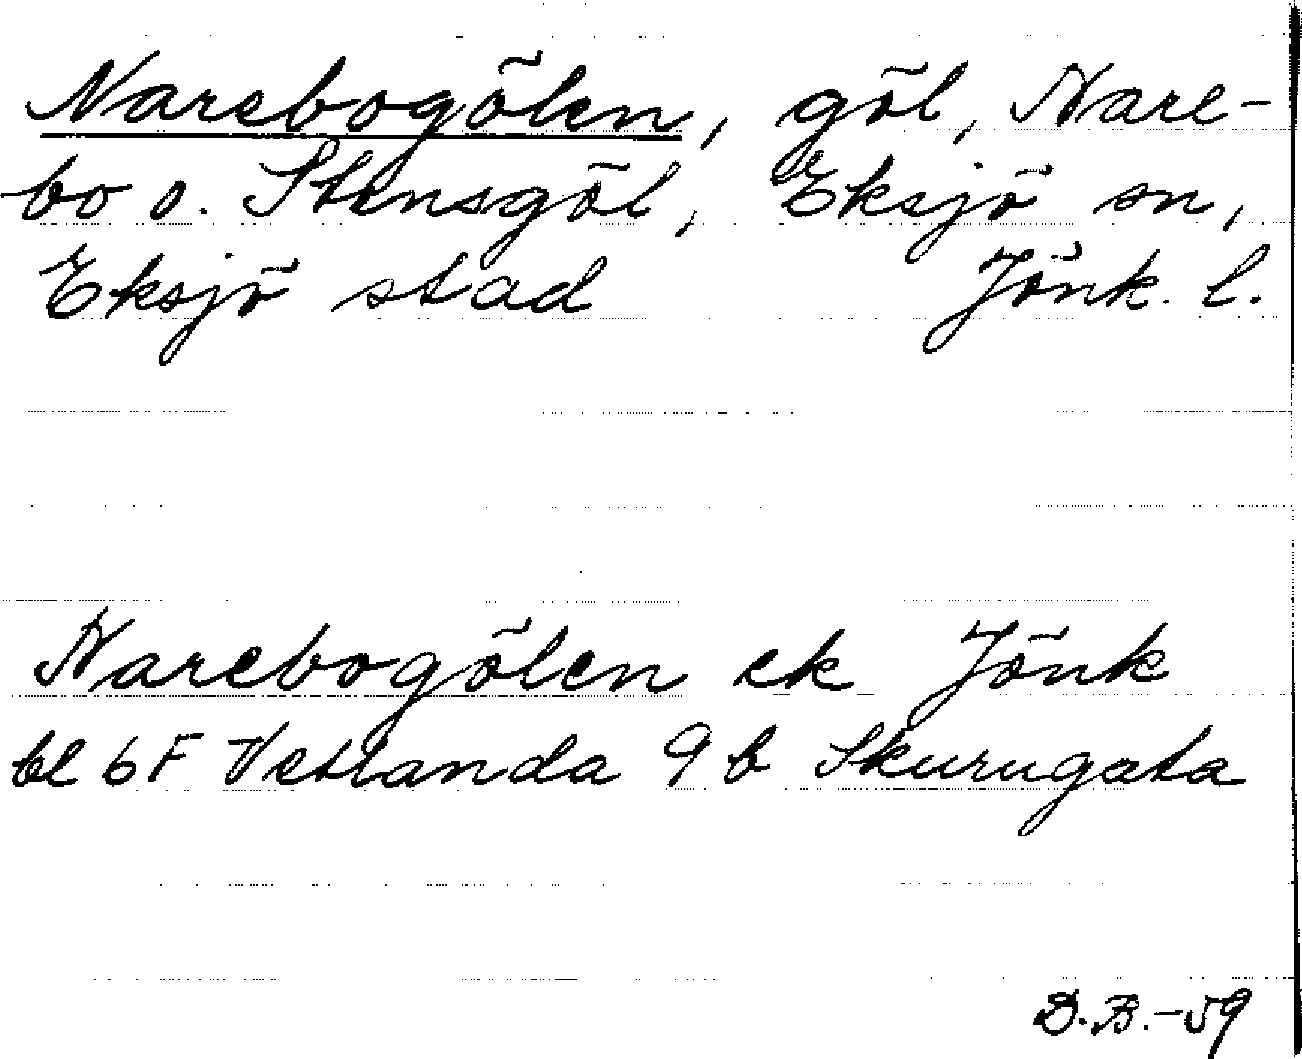 Narebogölen, göl, Nare-
bo o. Stensgöl, Eksjö sn,
Eksjö stad Jönk. l.
Narebogölen ek Jönk
bl 6F Vetlanda 9 b Skurugata
D.B.-59